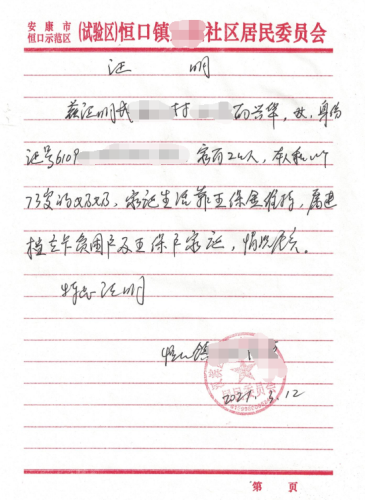 安康市
恒口示范区 (试验区)恒口镇 社区居民委员会
证 明
兹证明我 村 兴华,女,身份
证号6109 家有2口人,本人和一个
73岁的妈妈,家庭生活靠五保金维持,属建
档立卡贫困户及五保户家庭,情况属实。
特此证明
恒口镇
居民委员会
2021.5.12
第 页